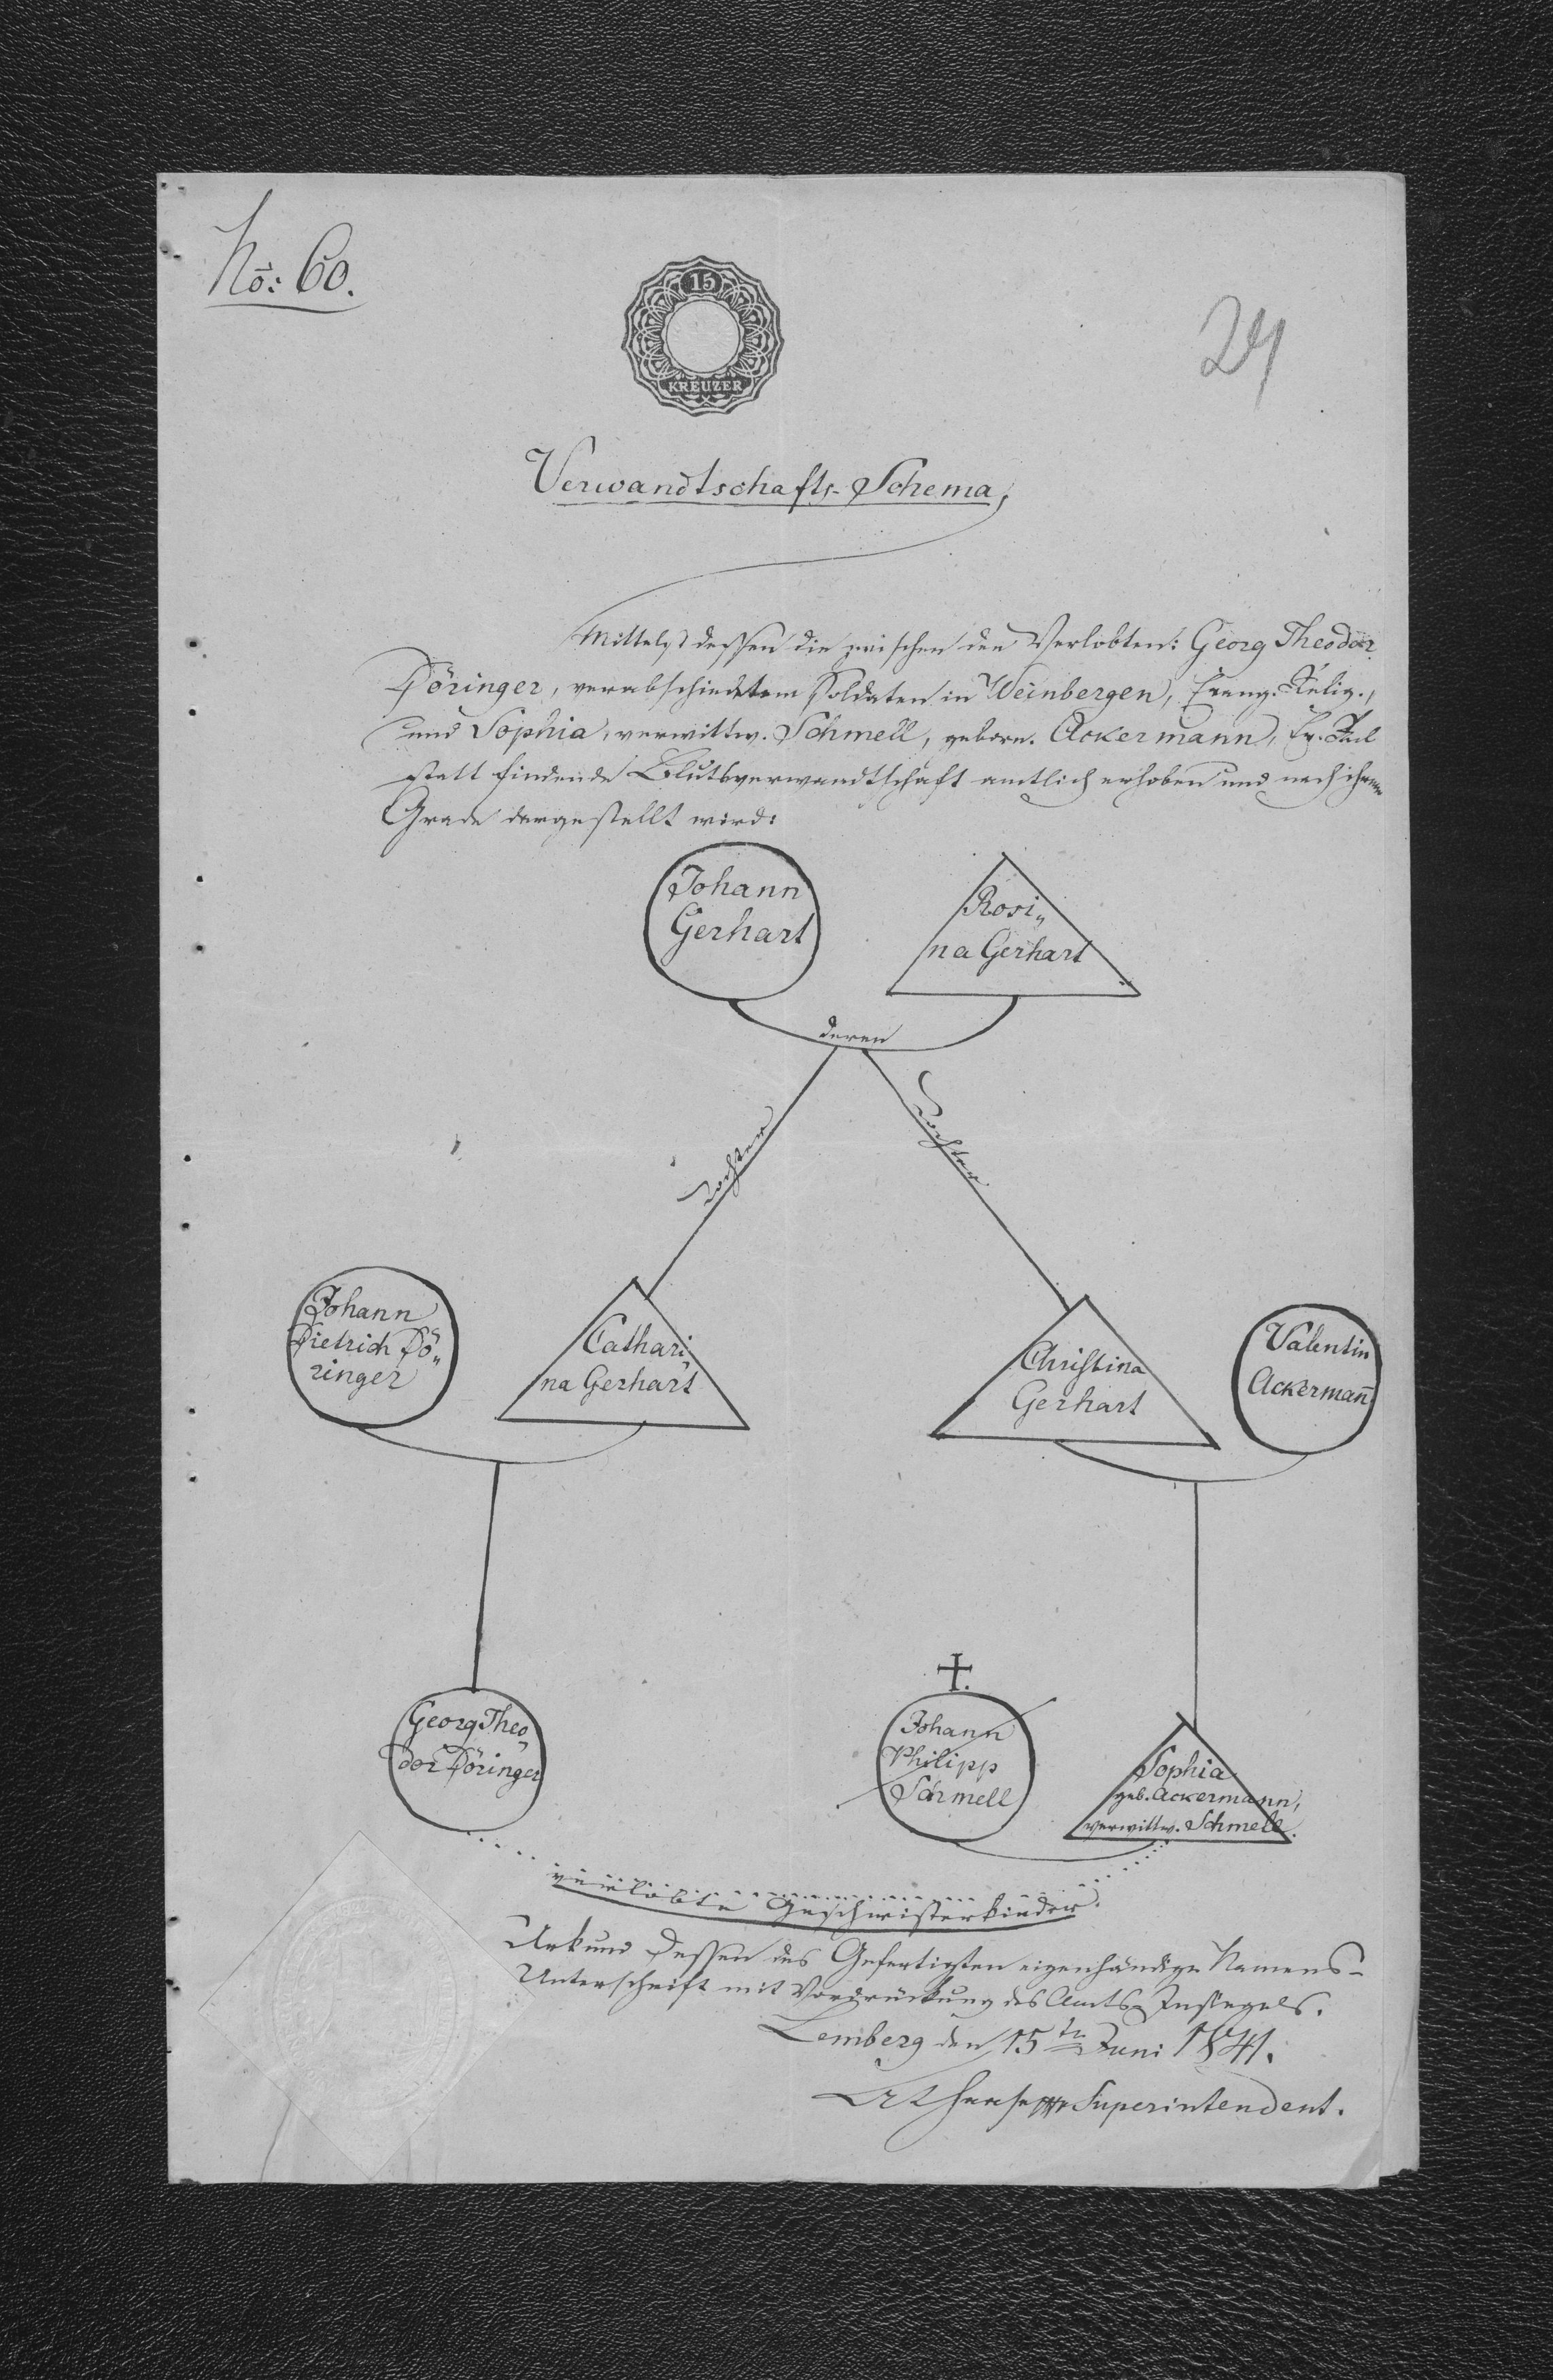 No: 60.
15
KREUZER
24
Verwandtschafts-Schema,
Mittelst dessen die zwischen den Verlobten: Georg Theodor
Döringer, verabschiedetem Soldaten in Weinbergen, Evang. Relig.,
und Sophia, verwittw. Schmell, geborn. Ackermann, Ev. Rel
statt findende Blutsverwandtschaft amtlich erhoben und nach ihrem
Grade dargestellt wird:
Johann
Gerhart
Rosi„
na Gerhart
deren
Tochter
Tochter
Johann
Dietrich Dö„
ringer
Cathari
na Gerhart
Christina
Gerhart
Valentin
Ackerman̄
Georg Theo„
dor Döringer
Johann
Philipp
Schmell
Sophia
geb. Ackermann,
verwittw. Schmell.
verlobte Geschwisterkinder.
Urkund dessen des Gefertigten eigenhändige Namens-
Unterschrift mit Vordrückung des Amts-Insiegels.
Lemberg den 15ten Juni 1841.
Superintendent.